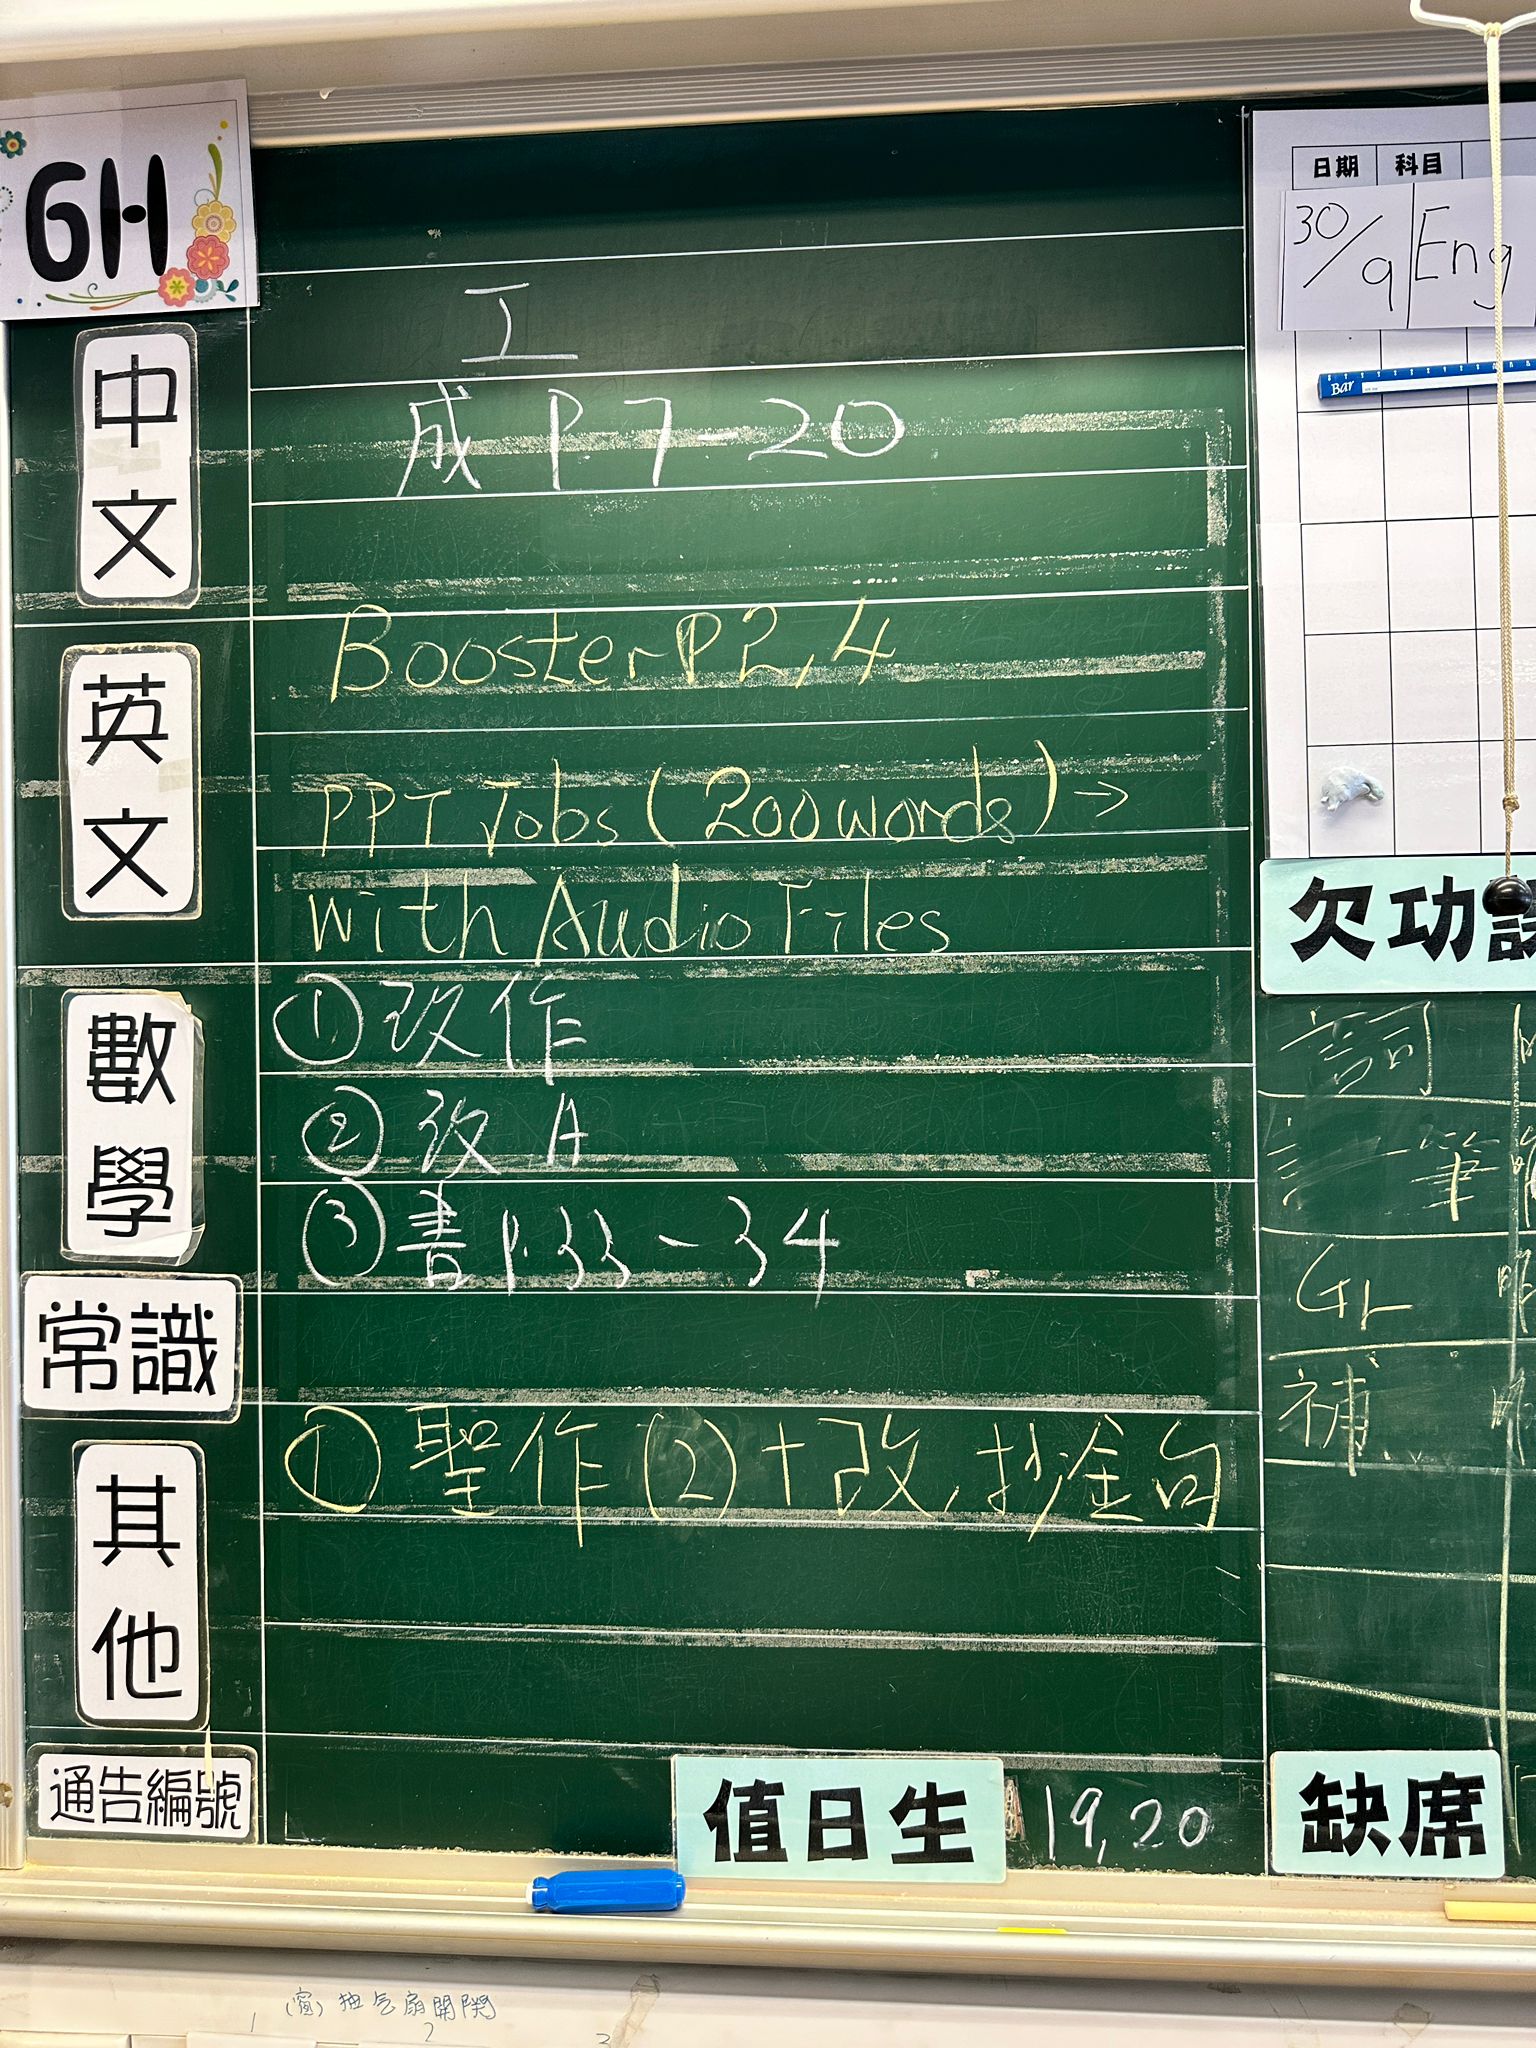 6H
中文
工
成 P.7-20
英文
Booster P2,4
PPT Jobs (200words) →
with Audio Files
數學
① 改作
② 改 A
③ 書 P.33~34
常識
其他
① 聖作(2)+改,抄金句
通告編號
值日生
19,20
日期 科目
30/9 Eng
Bar
欠功課
詞
筆
GL
補
缺席
抽气扇開関
1 2 3